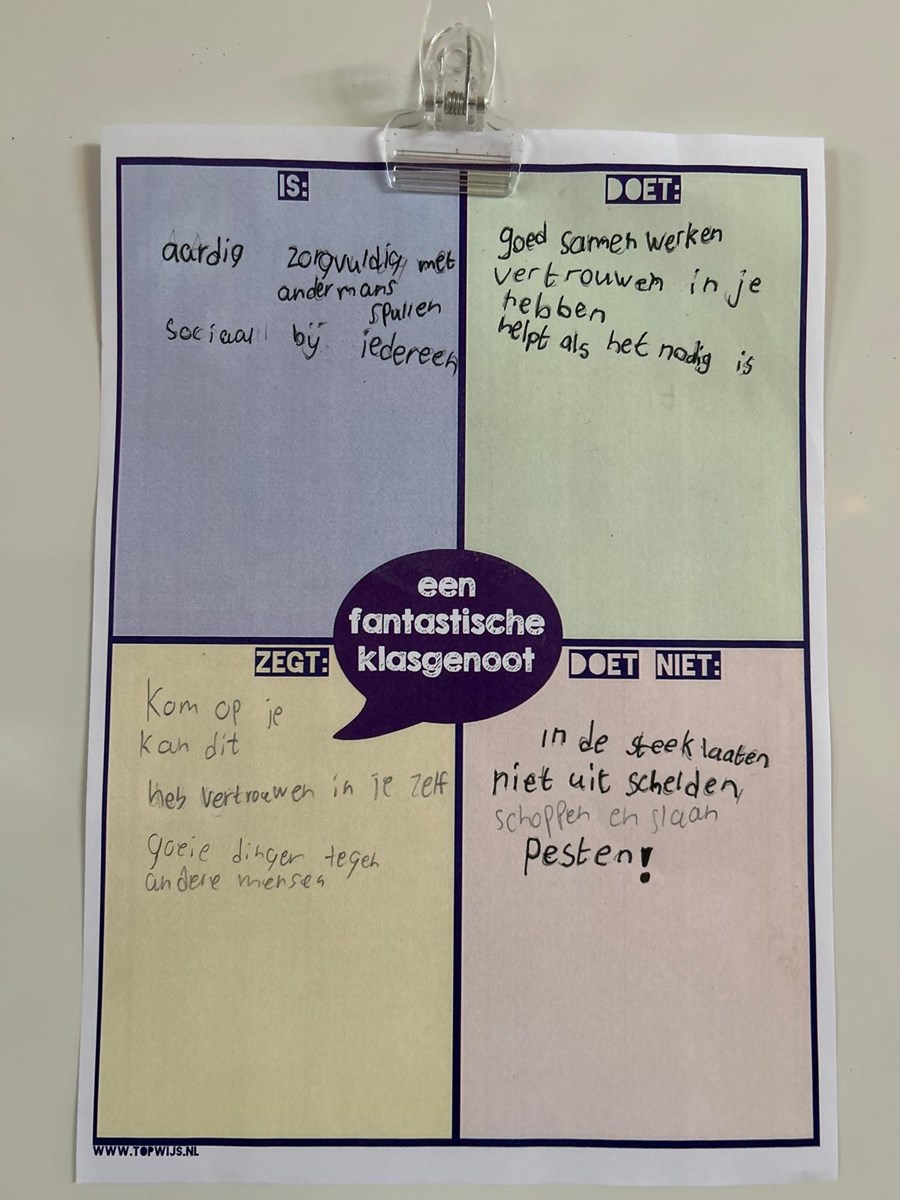 IS:
aardig zorgvuldig met
andermans
spullen
sociaal bij iedereen
DOET:
goed samen werken
vertrouwen in je
hebben
helpt als het nodig is
een
fantastische
klasgenoot
ZEGT:
Kom op je
kan dit
heb vertrouwen in je zelf
goeie dingen tegen
andere mensen
DOET NIET:
in de steek laaten
niet uit schelden,
schoppen en slaan
Pesten!
WWW.TOPWIJS.NL